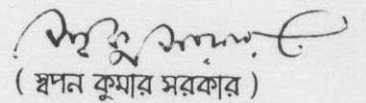 ( স্বপন কুমার সরকার )